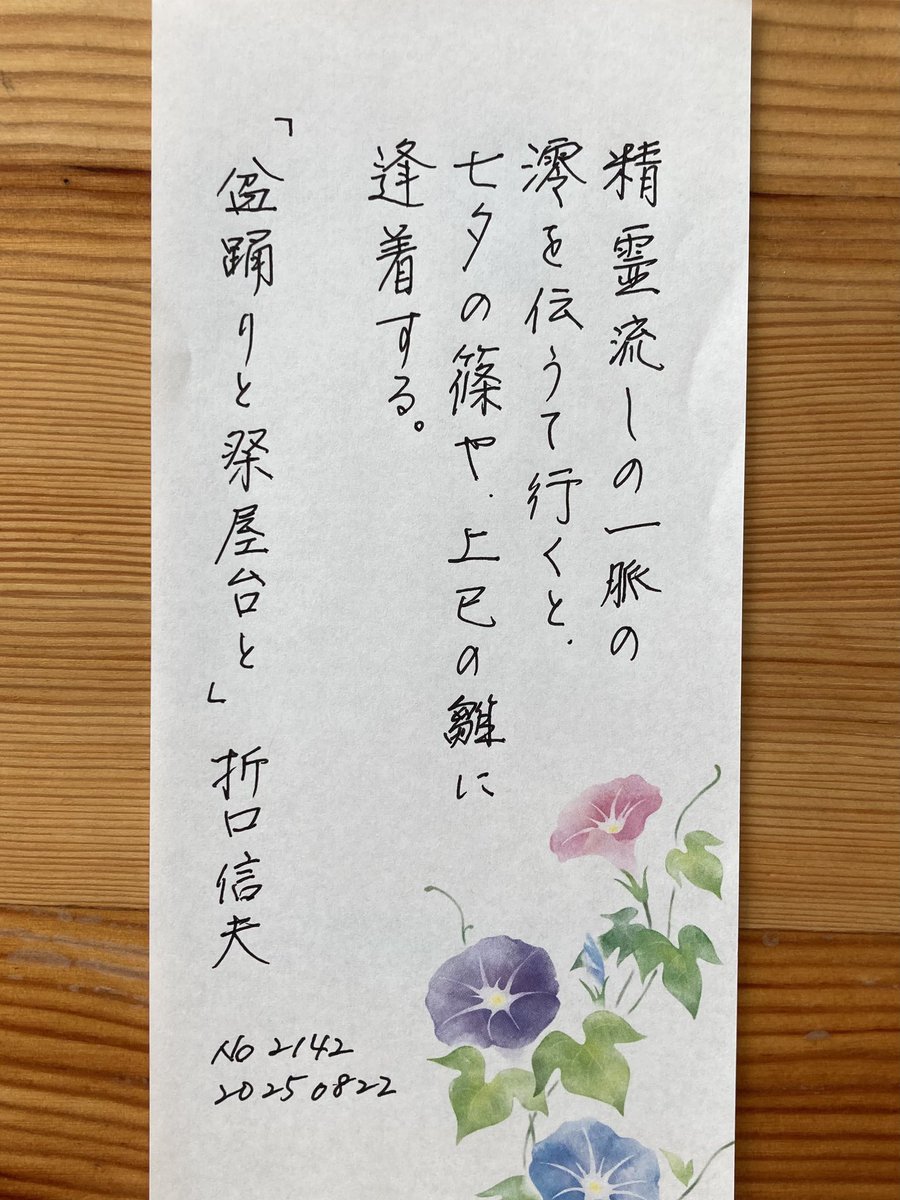 精霊流しの一脈の
澪を伝うて行くと、
七夕の篠や、上巳の雛に
逢着する。
「盆踊りと祭屋台と」 折口信夫
No 2142
20250822